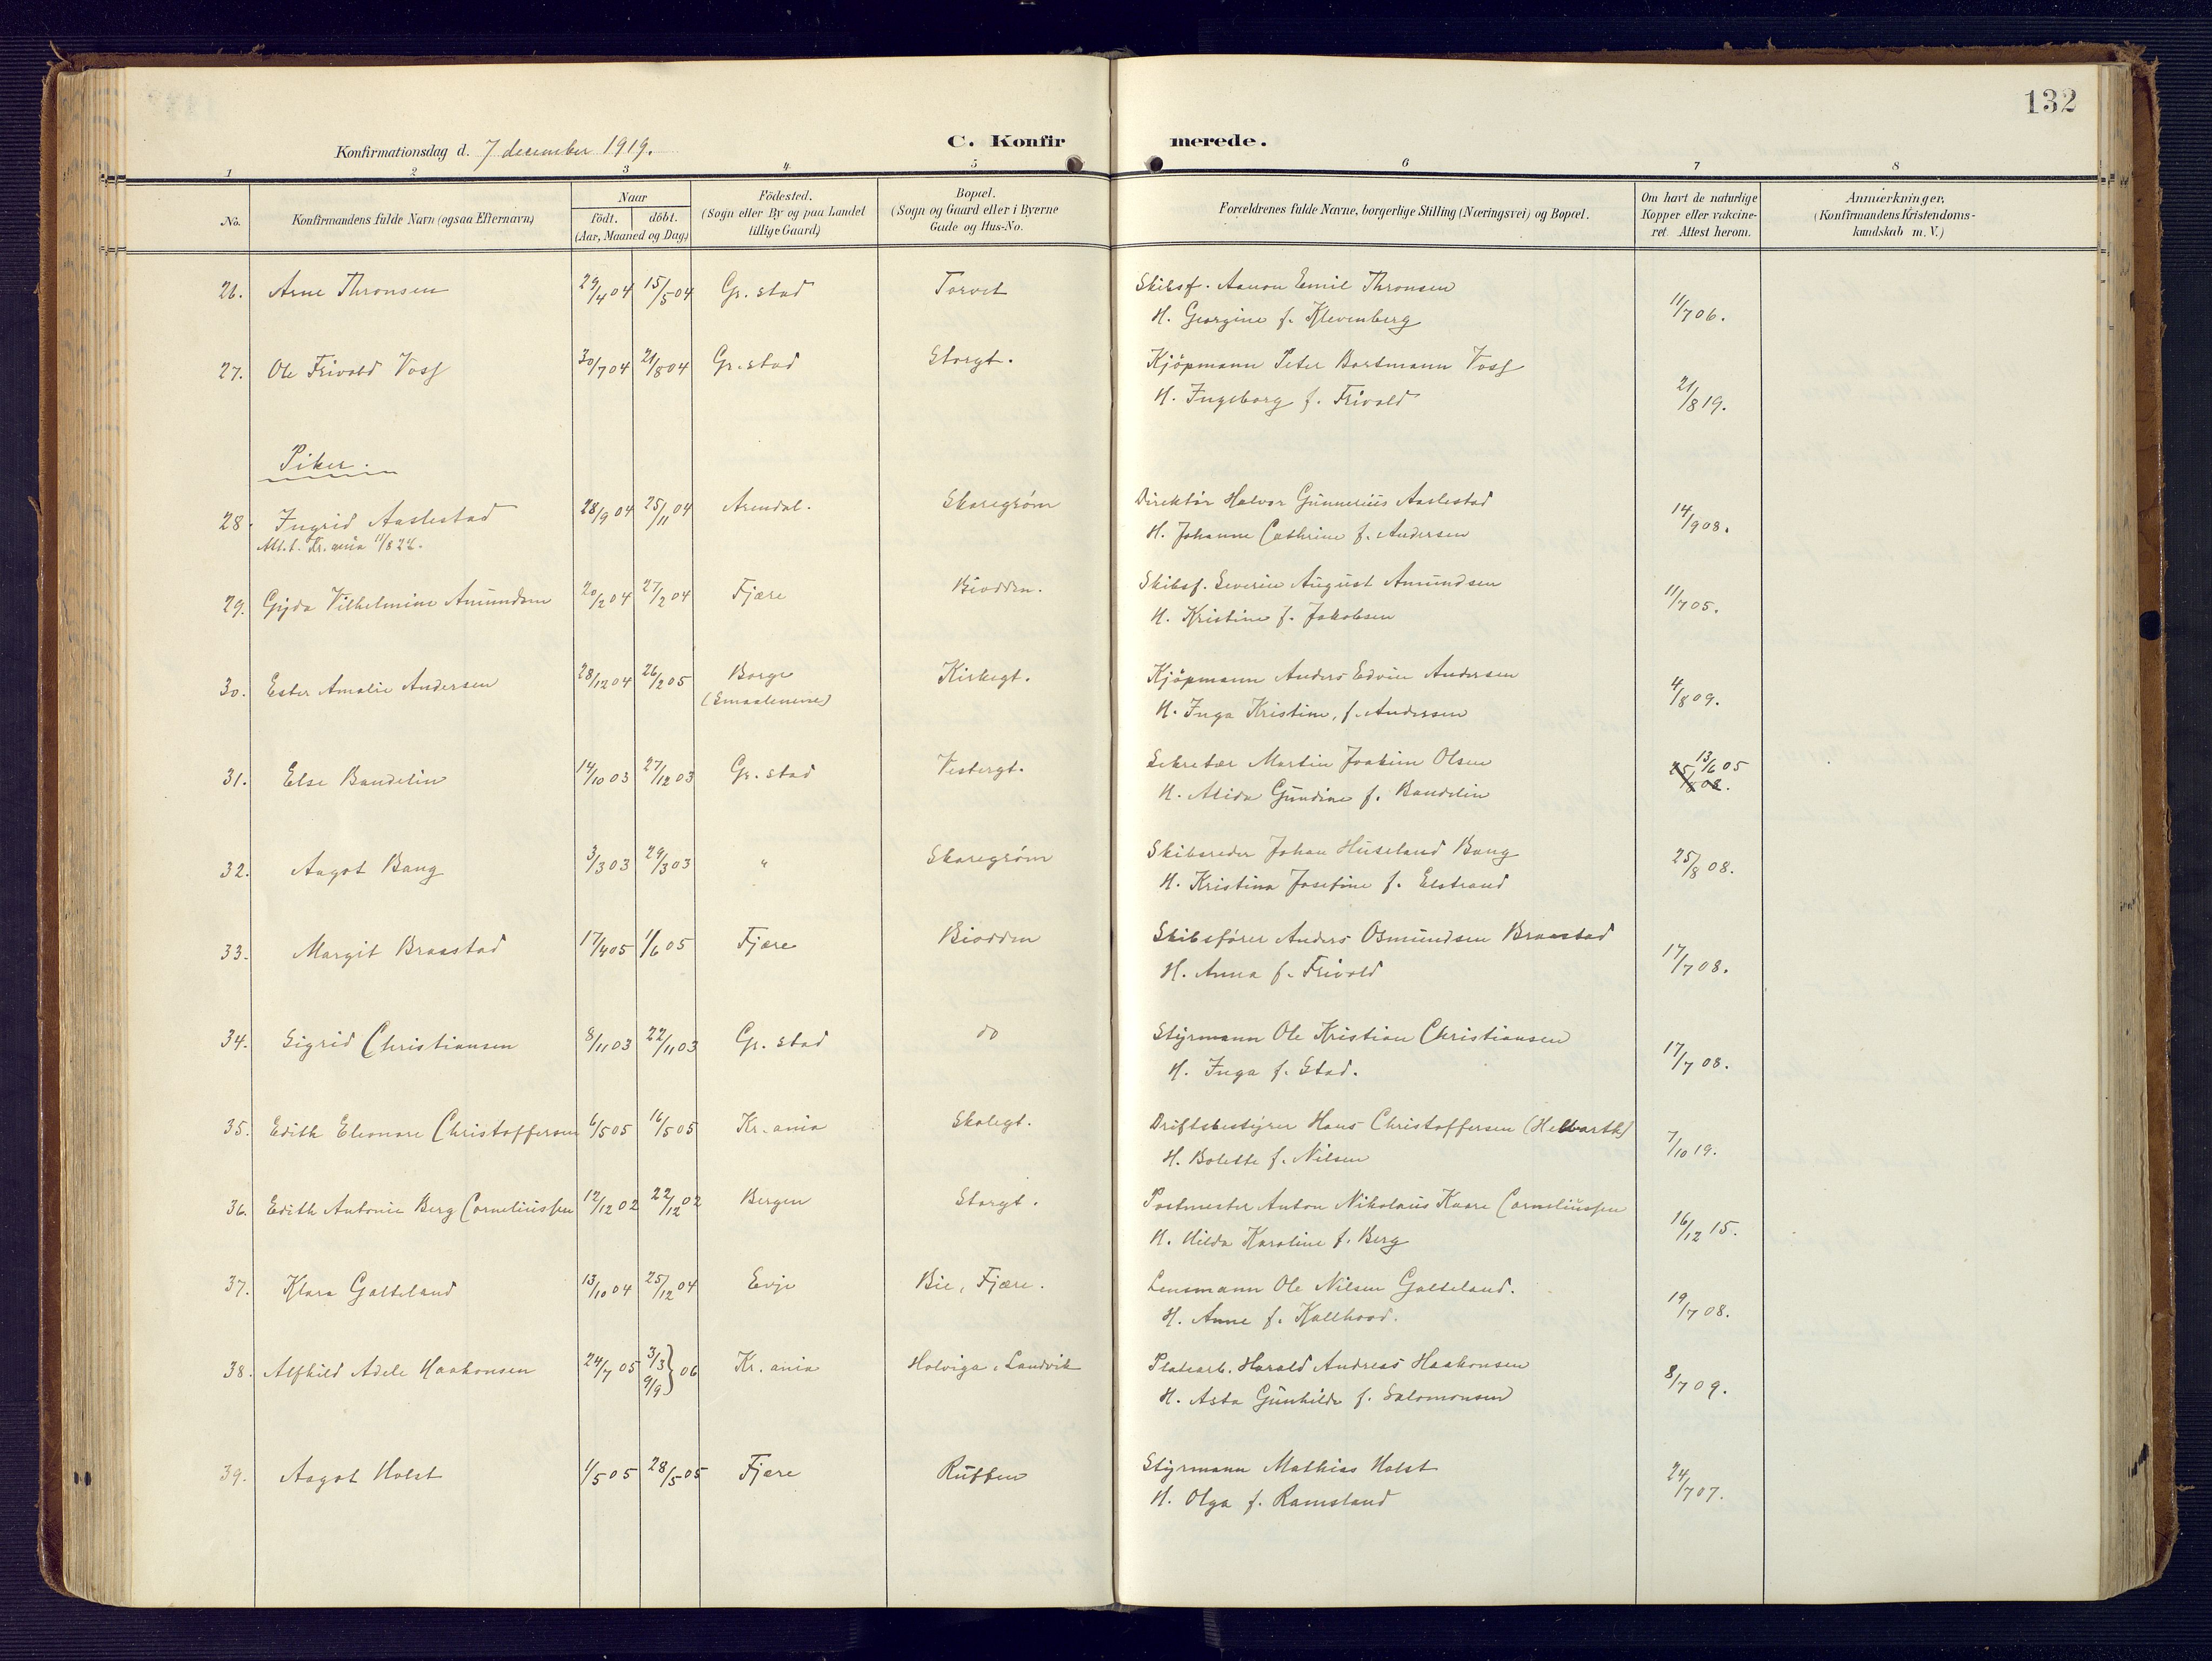 132
Konfirmationsdag d. 7 december 1919.
C. Konfirmerede.
1 2 3 4 5 6 7 8
No. Konfirmandens fulde Navn (ogsaa Efternavn) Naar födt. döbt. (Aar, Maaned og Dag.) Födested. (Sogn eller By og paa Landet tillige Gaard) Bopæl. (Sogn og Gaard eller i Byerne Gade og Hus-No. Forældrenes fulde Navne, borgerlige Stilling (Næringsvei) og Bopæl. Om havt de naturlige Kopper eller vakcineret. Attest herom. Anmærkninger, (Konfirmandens Kristendomskundskab m. V.)
26. Arne Thronsen 29/4 04 15/5 04 Gr.stad Torvet Skibsf. Aanon Emil Thronsen 11/7 06.
H. Georgine f. Klevenberg
27. Ole Frivold Voss 30/7 04 21/8 04 Gr.stad Storgt. Kjöpmann Peter Bortmann Voss 21/8 19.
H. Ingeborg f. Frivold
Piker.
28. Ingrid Aaslestad 28/9 04 25/11 04 Arendal. Skaregrøm Direktör Halvor Gunnerius Aaslestad 14/9 08.
Att. t. Kr.ania 11/8 22. H. Johanne Cathrine f. Andersen
29. Gyda Vilhelmine Amundsen 20/2 04 27/2 04 Fjære Biodden. Skibsf. Severin August Amundsen 11/7 05.
H. Kristine f. Jakobsen
30. Ester Amalie Andersen 28/12 04 26/2 05 Borge Kirkegt. Kjöpmann Anders Edvin Andersen 4/8 09.
(Smaalenene) H. Inga Kristine, f. Andersen
31. Else Bandelin 14/10 03 27/12 03 Gr.stad Vestergt. Sekretær Martin Joakim Olsen 13/6 05
H. Alida Gundine f. Bandelin 25/8 08.
32. Aagot Bang 3/3 03 29/3 03 " Skaregrøm Skibsreder Johan Huseland Bang 25/8 08.
H. Kristina Josefine f. Elstrand
33. Margit Braastad 17/4 05 1/6 05 Fjære Biodden Skibsfører Anders Osmundsen Braastad 17/7 08.
H. Anna f. Frivold
34. Sigrid Christiansen 8/11 03 22/11 03 Gr.stad do Styrmann Ole Kristian Christiansen 17/7 08.
H. Inga f. Stad.
35. Edith Eleonore Christoffersen 6/5 05 16/5 05 Kr.ania Skolegt. Driftsbestyrer Hans Christoffersen 7/10 19.
H. Bolette f. Nilsen
36. Edith Antonie Berg Corneliussen 12/12 02 22/12 02 Bergen Storgt. Postmester Anton Nikolaus Kaare Corneliussen 16/12 15.
H. Hilda Karoline f. Berg
37. Klara Galteland 13/10 04 25/12 04 Evje Bie, Fjære. Lensmann Ole Nilsen Galteland. 19/7 08.
H. Anne f. Kallhovd.
38. Alfhild Adele Haakonsen 24/7 05 3/3 9/9 } 06 Kr.ania Holviga, Landvik Platearb. Harald Andreas Haakonsen 8/7 09.
H. Asta Gunhilde f. Salomonsen
39. Aagot Holst 1/5 05 28/5 05 Fjære Rutten Styrmann Mathias Holst 24/7 07.
H. Olga f. Ramsland